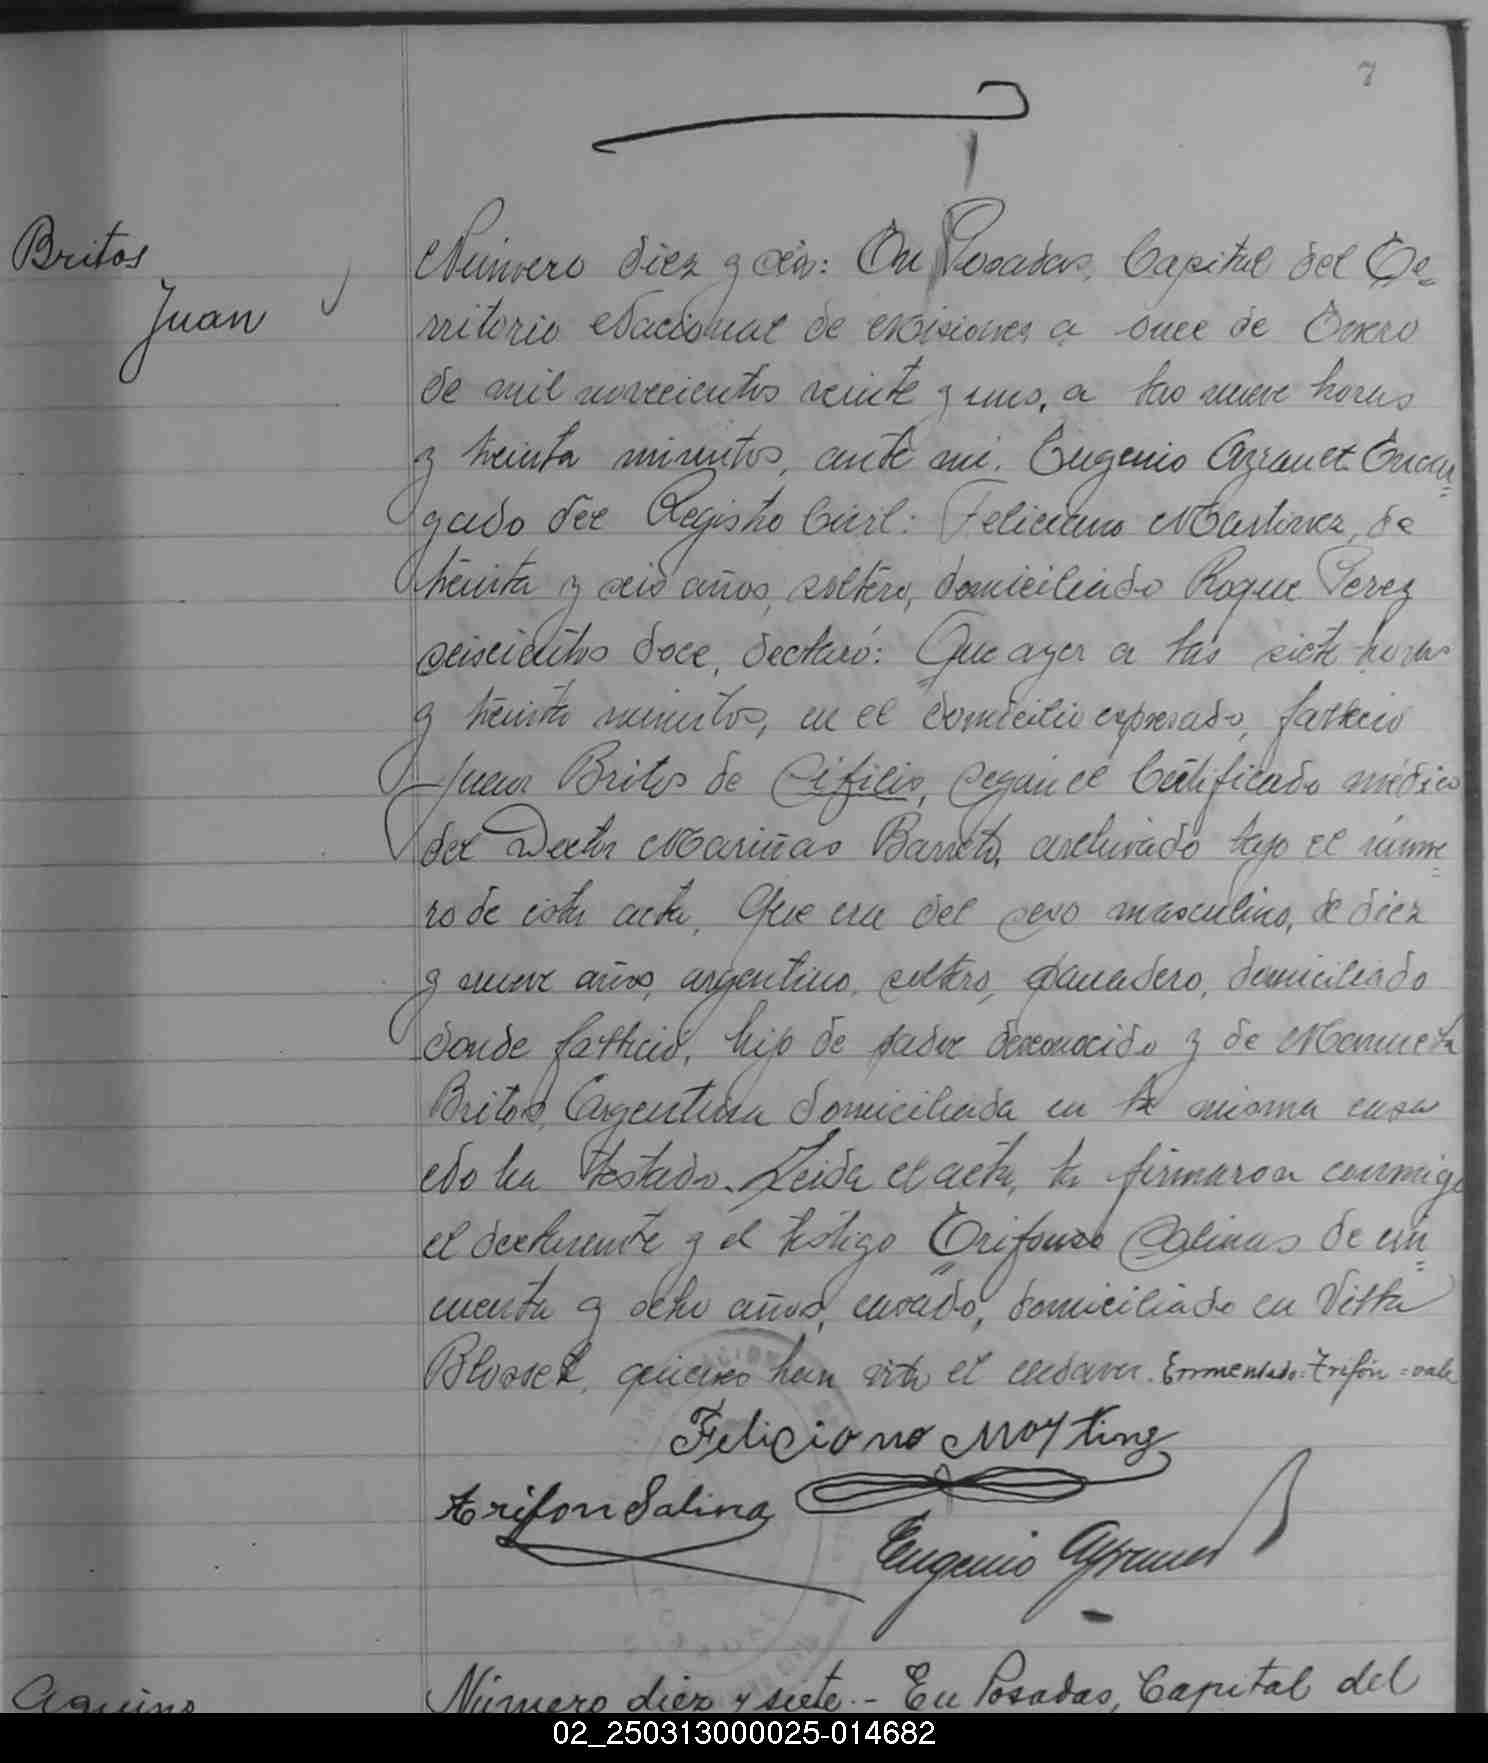 7
Britos
Juan
Número diez y seis: En Posadas, Capital del Te=
rritorio Nacional de Misiones a once de Enero
de mil novecientos veinte y uno, a las nueve horas
y treinta minutos, ante mi. Eugenio Encar=
gado del Registro Civil: Feliciano Martinez, de
treinta y seis años, soltero, domiciliado Roque Perez
seiscientos doce, declaró: Que ayer a las siete horas
y treinta minutos, en el domicilio expresado, falleció
Juan Britos de Sífilis, según el Certificado médico
del Doctor Mariñas Barreto, archivado bajo el núme=
ro de esta acta, Que era del sexo masculino, de diez
y nueve años, argentino, soltero, panadero, domiciliado
donde falleció, hijo de padre desconocido y de Manuela
Britos, Argentina domiciliada en la misma casa
No ha testado. Leida el acta, la firmaron conmigo
el declarante y el testigo Trifonso Salinas de cin=
cuenta y ocho años, casado, domiciliado en Villa
Blosset, quienes han visto el cadaver. Enmendado: Trifón = vale
Feliciano Martinz
trifon Salina
Eugenio
Aquino
Número diez y siete.- En Posadas, Capital del
02_250313000025-014682